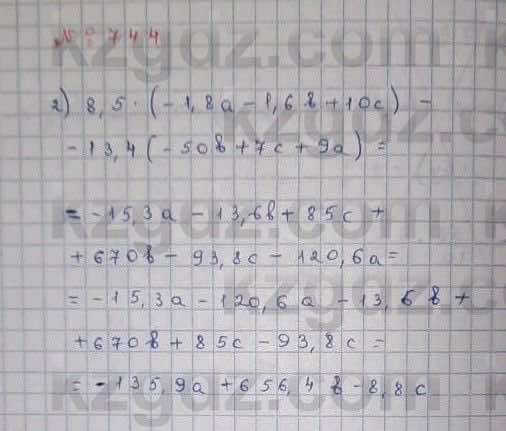 № 744
2) 8,5·(-1,8a-1,6b+10c)-
-13,4(-50b+7c+9a)=
=-15,3a-13,6b+85c+
+670b-93,8c-120,6a=
=-15,3a-120,6a-13,6b+
+670b+85c-93,8c=
=-135,9a+656,4b-8,8c
kzgdz.com